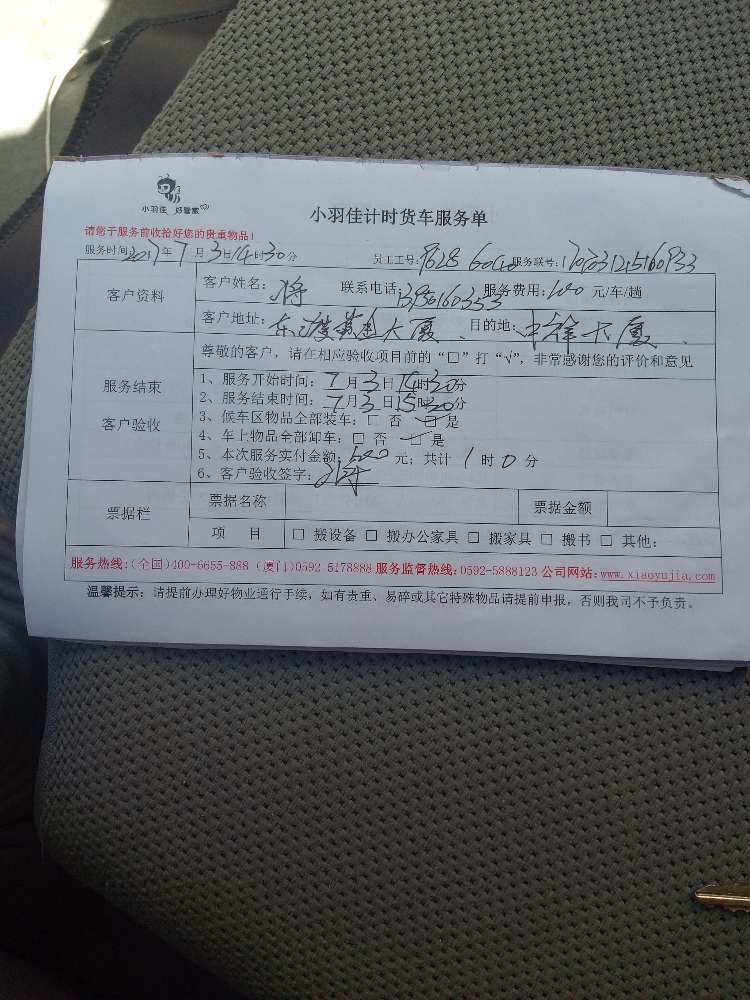 小羽佳 好管家
小羽佳计时货车服务单
请您于服务前收拾好您的贵重物品！
服务时间：2017年7月3日14时30分 员工工号：9628 6040 服务联号：
客户资料
客户姓名： 联系电话： 服务费用： 元/车/趟
客户地址：东渡黄金大厦 目的地：
服务结束
客户验收
尊敬的客户，请在相应验收项目前的“□”打“√”，非常感谢您的评价和意见
1、服务开始时间：7月3日14时30分
2、服务结束时间：7月3日15时30分
3、候车区物品全部装车：□ 否 ☑ 是
4、车上物品全部卸车：□ 否 ☑ 是
5、本次服务实付金额： 元；共计 1 时 0 分
6、客户验收签字：
票据栏
票据名称 票据金额
项 目 □ 搬设备 □ 搬办公家具 □ 搬家具 □ 搬书 □ 其他：
服务热线：(全国)400-6655-888 (厦门)0592-5178888 服务监督热线：0592-5888123 公司网站：www.xiaoyujia.com
温馨提示：请提前办理好物业通行手续，如有贵重、易碎或其它特殊物品请提前申报，否则我司不予负责。